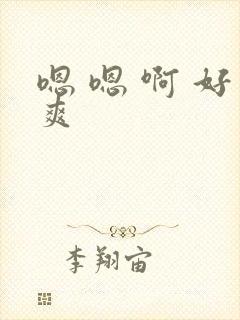 嗯嗯啊好
爽
李翔宙